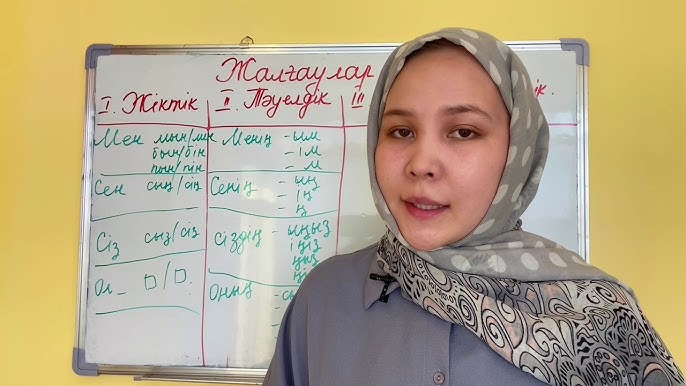 Жалғаулар
І. Жіктік ІІ Тәуелдік ІІІ ік.
Мен мын/мін Менің -ым
бын/бін -ім
пын/пін -м
Сен сың/сің Сенің -ың
-ің
ң
Сіз сыз/сіз сіздің -ыңыз
іңіз
ңыз
Ол_ □/□. Оның -сы